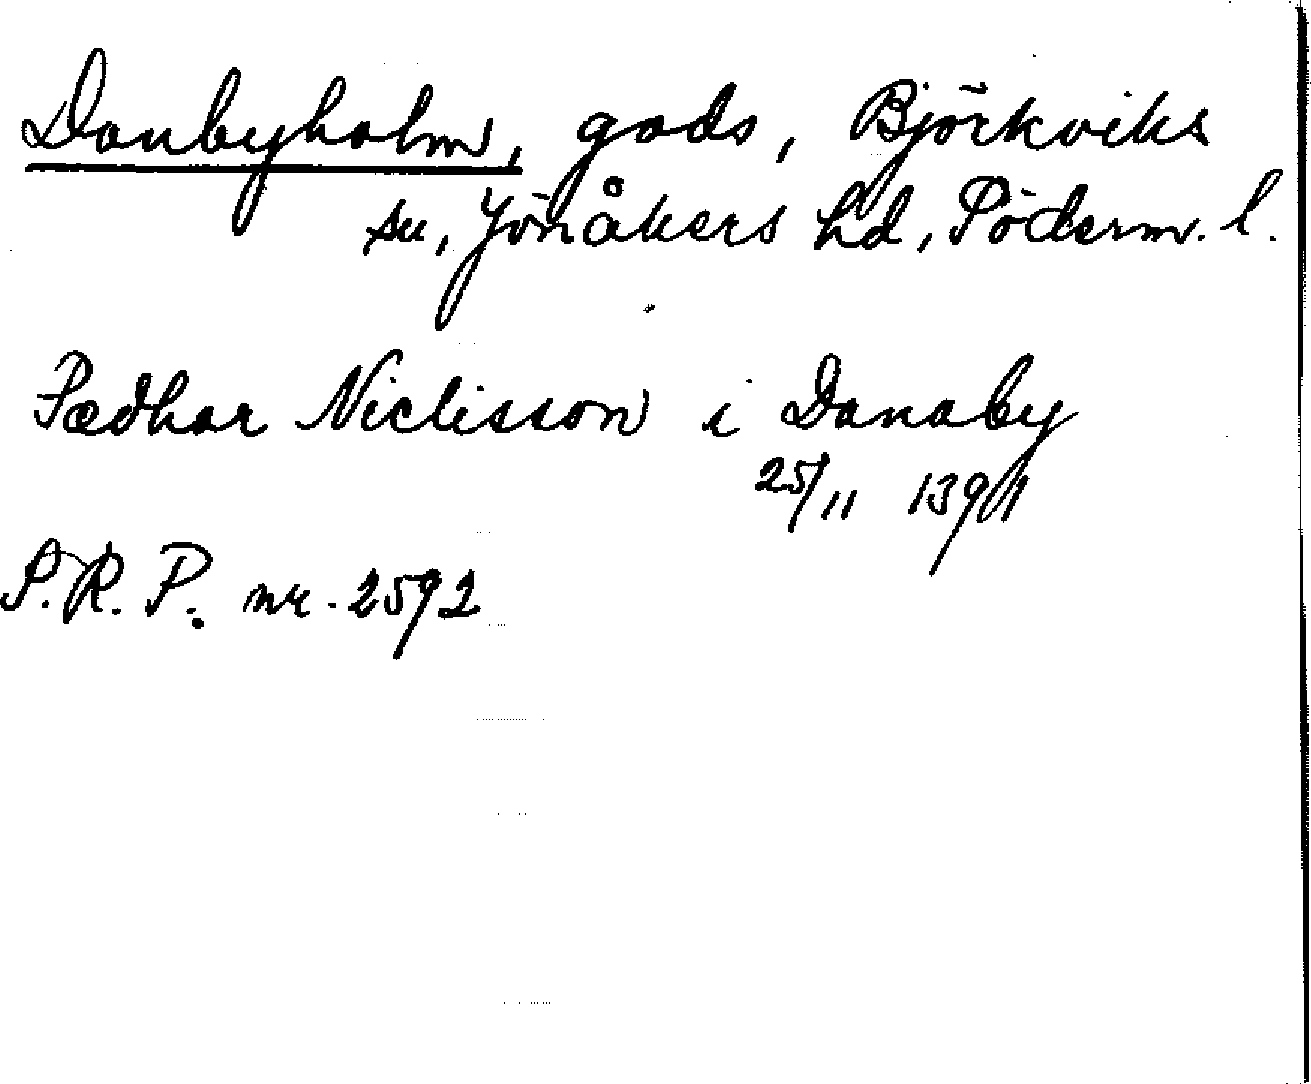 Danbyholm, gods, Björkviks
sn, Jönåkers hd, Söderm. l.
Pædhar Niclisson i Danaby
25/11 1391
S.R.P. nr. 2592